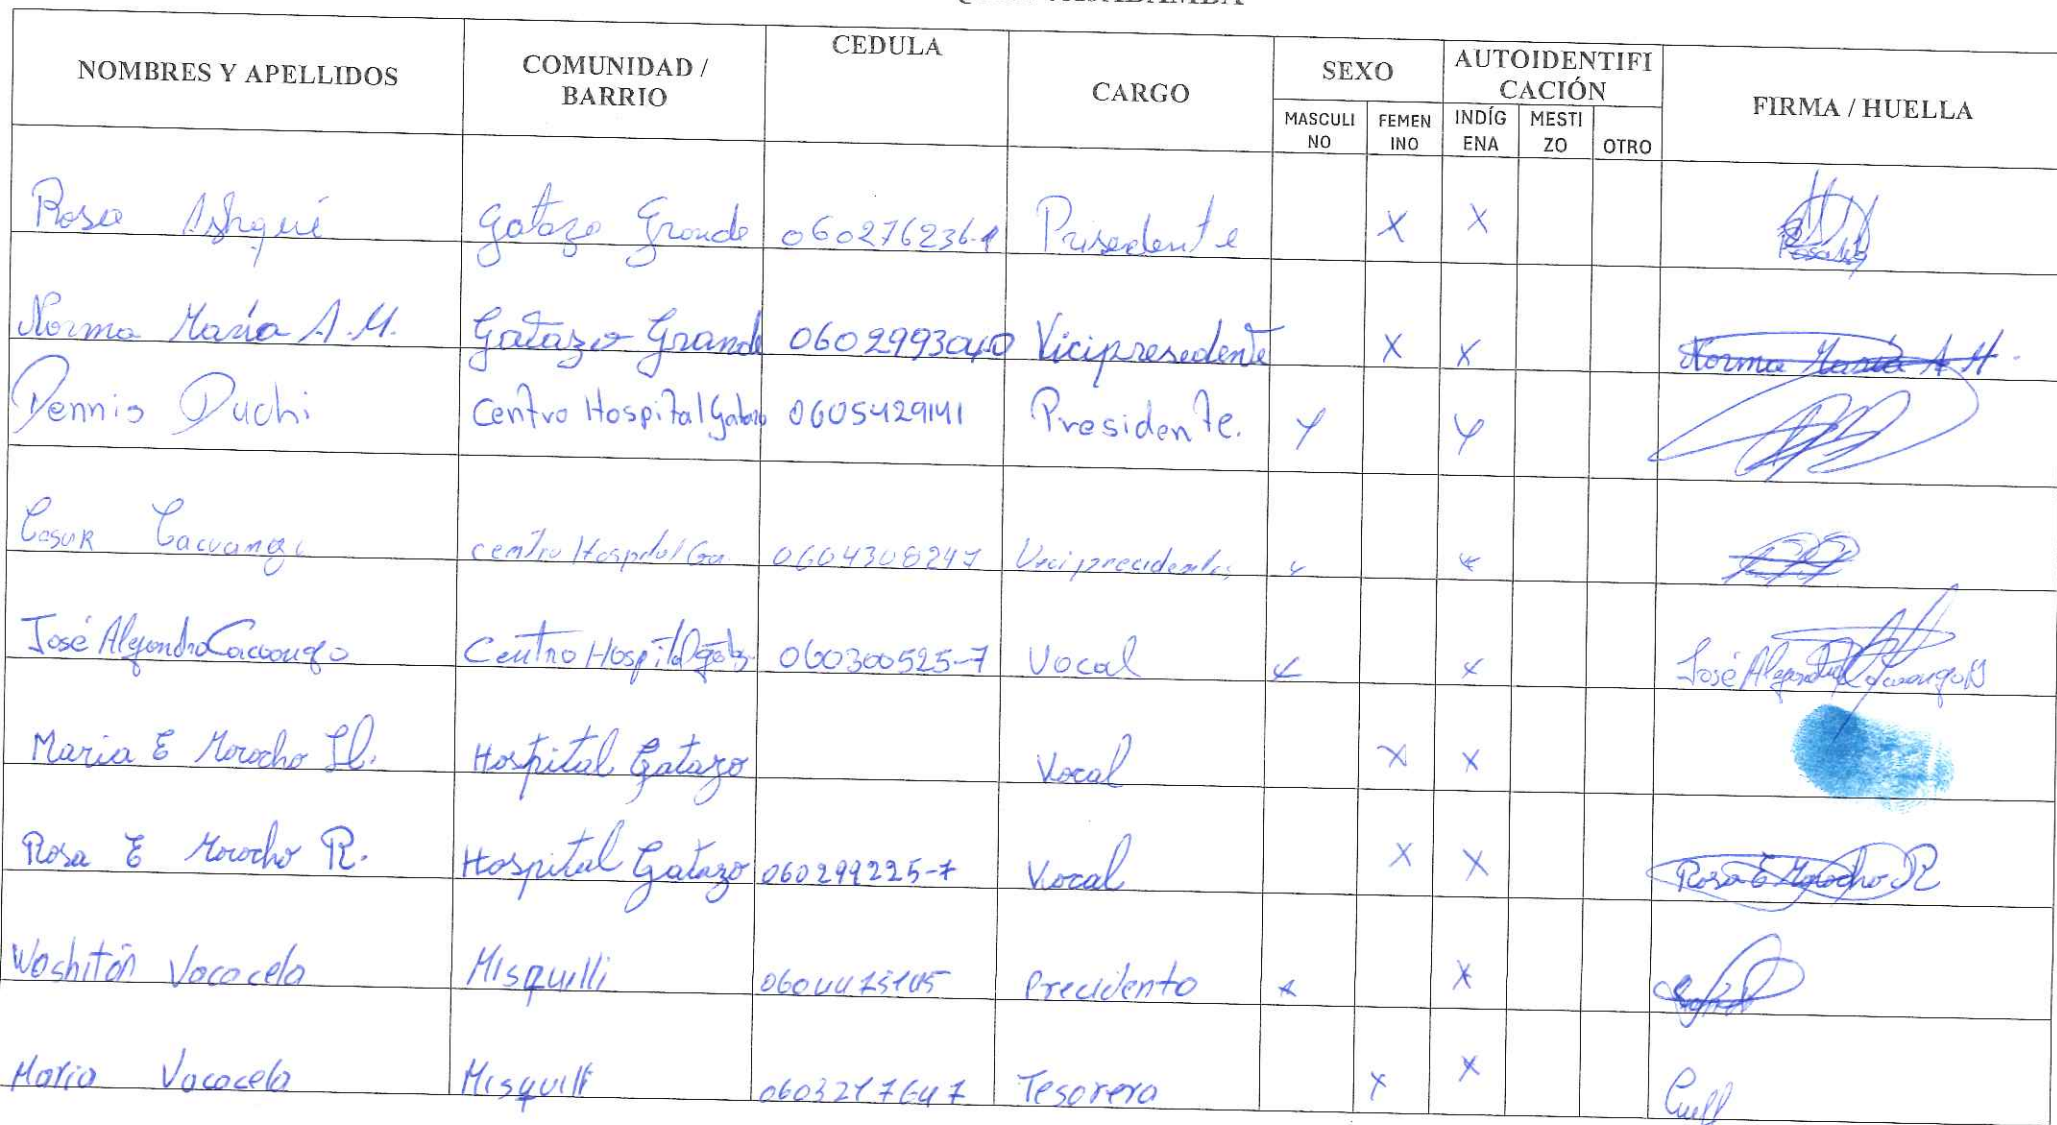 NOMBRES Y APELLIDOS COMUNIDAD / BARRIO CEDULA CARGO SEXO AUTOIDENTIFICACIÓN FIRMA / HUELLA
MASCULINO FEMENINO INDÍGENA MESTIZO OTRO
Rosa Ashqui Gatazo Grande 060276236-1 Prisedente X X
Norma María A.M. Gatazo Grande 0602993040 Vicipresedente X X Norma María A M.
Dennis Duchi Centro Hospital Gatazo 0605429141 Presidente. X X
Cesar Cacuango centro Hospital Ga 0604308247 Viciprecidente x x
José Alejandro Cacuango Centro Hospital Gatz 060300525-7 Vocal x x José Alejandro Cacuango
Maria E Morocho Ll. Hospital Gatazo Vocal X X
Rosa E Morocho R. Hospital Gatazo 060299225-7 Vocal X X Rosa E Morocho R
Washitón Vacacela Misquilli Precidento x X
Maria Vacacela Misquilli 0603217647 Tesorera X X